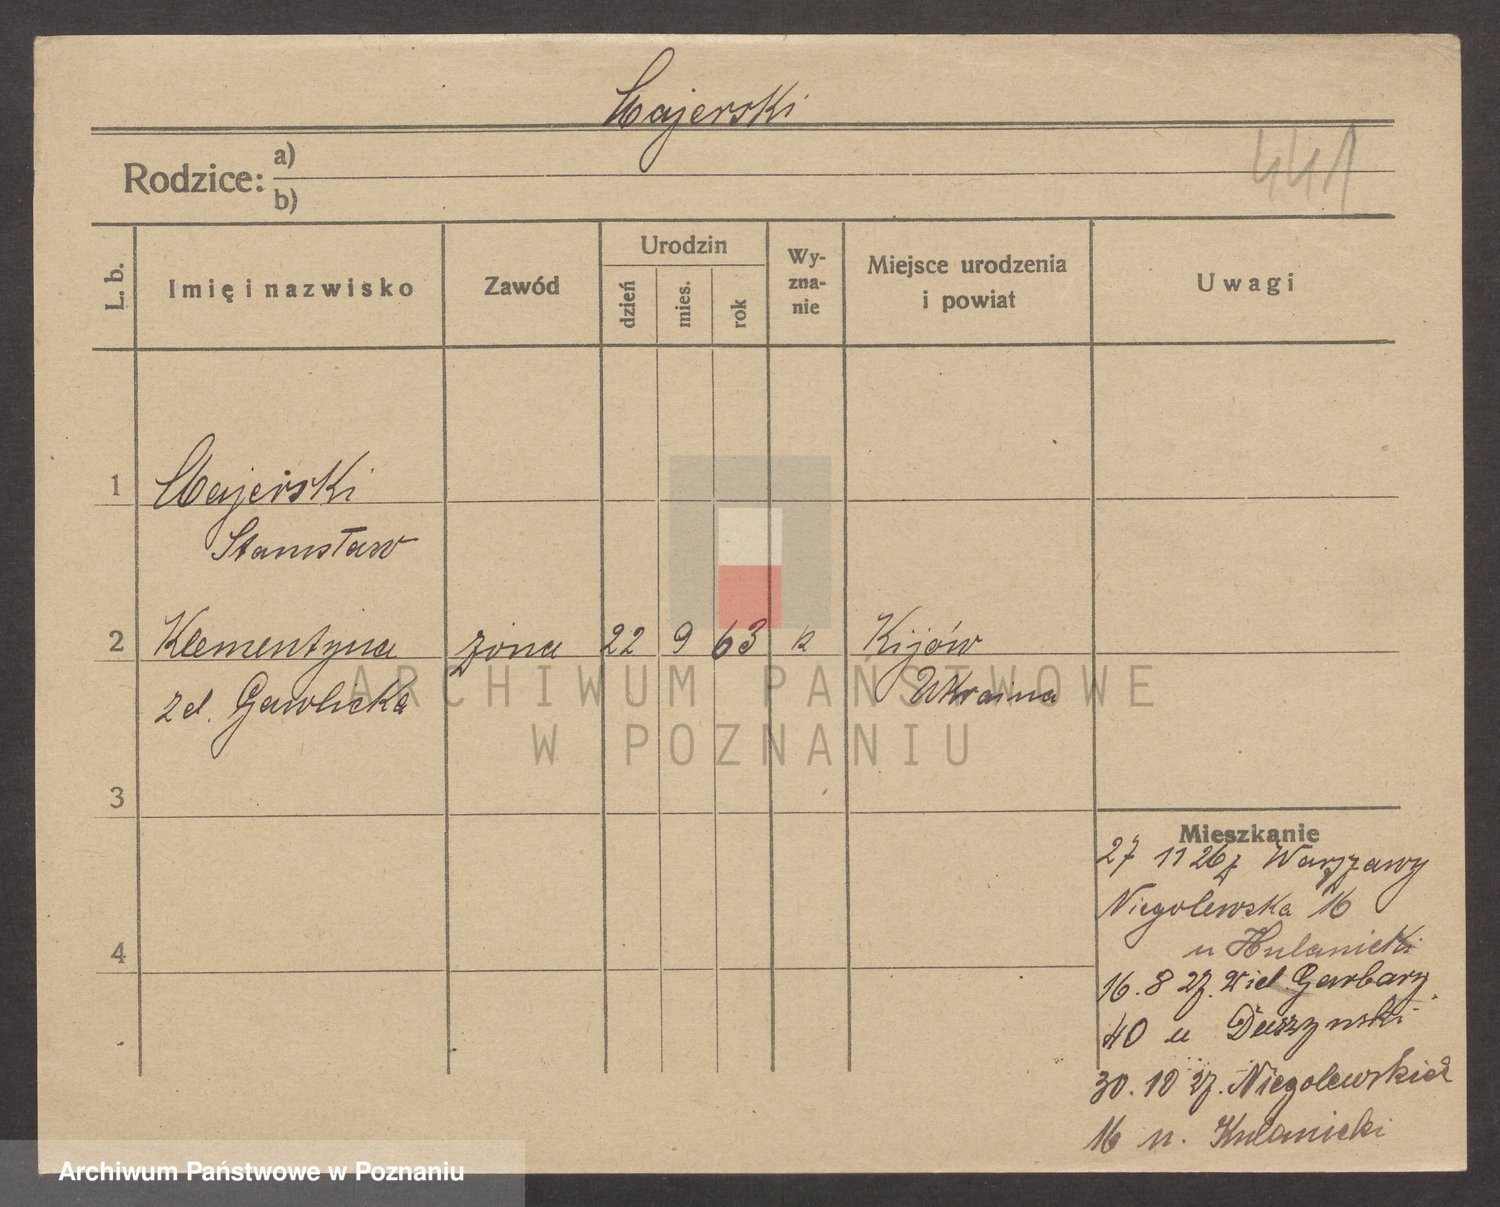 Majerski
Rodzice: a)
b)
441
L. b.
Imię i nazwisko
Zawód
Urodzin
dzień
mies.
rok
Wy-
zna-
nie
Miejsce urodzenia
i powiat
Uwagi
1
Majerski
Stanisław
2 Klementyna żona 22 9 63 k Kijów
zd. Gawlicka Ukraina
ARCHIWUM PAŃSTWOWE
W POZNANIU
3
4
Mieszkanie
27 11 26 z Warszawy
Niegolewska 16
u Hulanicki
16. 8 27. Wiel. Garbary
40 u Duszynski
30. 10 27. Niegolewskich
16 u. Hulanicki
Archiwum Państwowe w Poznaniu